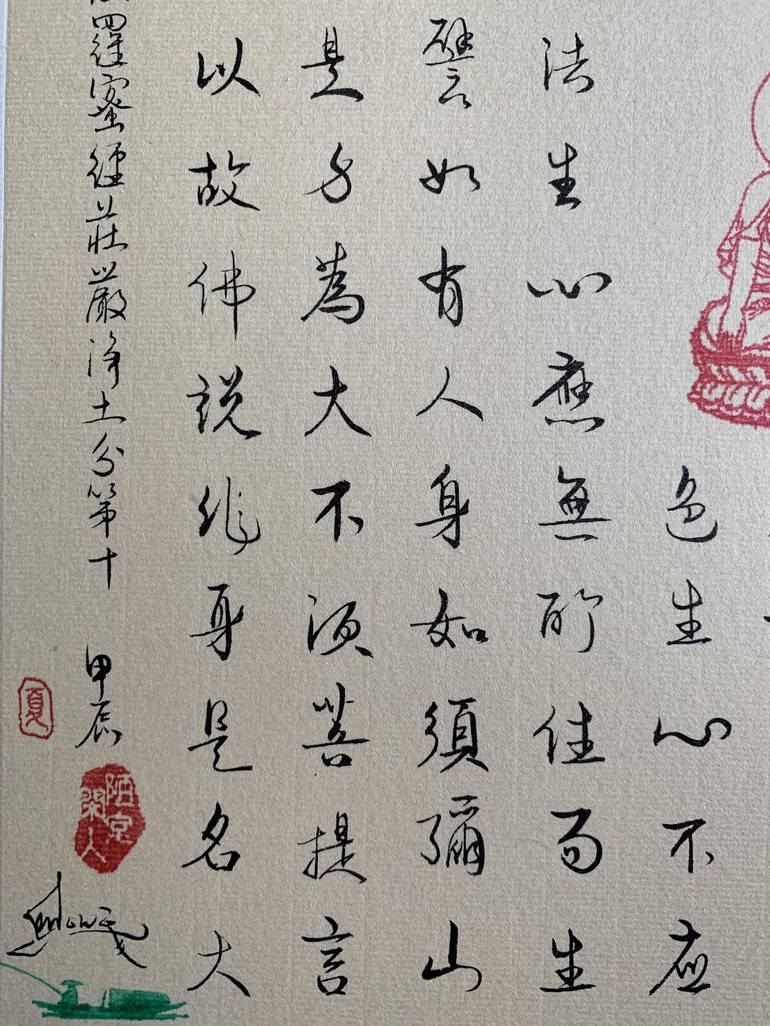 色生心不应
法生心應無所住而生
譬如有人身如須彌山
是身為大不須菩提言
以故佛說非身是名大
羅蜜經莊嚴淨土分第十 甲辰
夏
陋室人